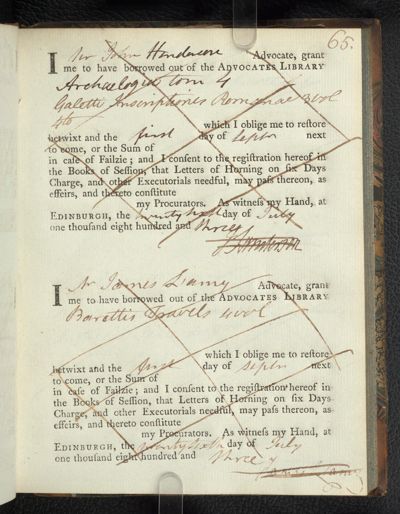 65.
I Mr John Henderson Advocate, grant
me to have borrowed out of the ADVOCATES LIBRARY
Archæologia tom 4
Galetti Inscriptiones Romanae 3 vol
4to which I oblige me to restore
betwixt and the first day of Septr next
to come, or the Sum of
in case of Failzie; and I consent to the registration hereof in
the Books of Session, that Letters of Horning on six Days
Charge, and other Executorials needful, may pass thereon, as
effeirs, and thereto constitute
my Procurators. As witness my Hand, at
EDINBURGH, the day of July
one thousand eight hundred and three
I Mr James Advocate, grant
me to have borrowed out of the ADVOCATES LIBRARY
Barettis Travels 4 vol
which I oblige me to restore
betwixt and the first day of Septr next
to come, or the Sum of
in case of Failzie; and I consent to the registration hereof in
the Books of Session, that Letters of Horning on six Days
Charge, and other Executorials needful, may pass thereon, as
effeirs, and thereto constitute
my Procurators. As witness my Hand, at
EDINBURGH, the day of July
one thousand eight hundred and three